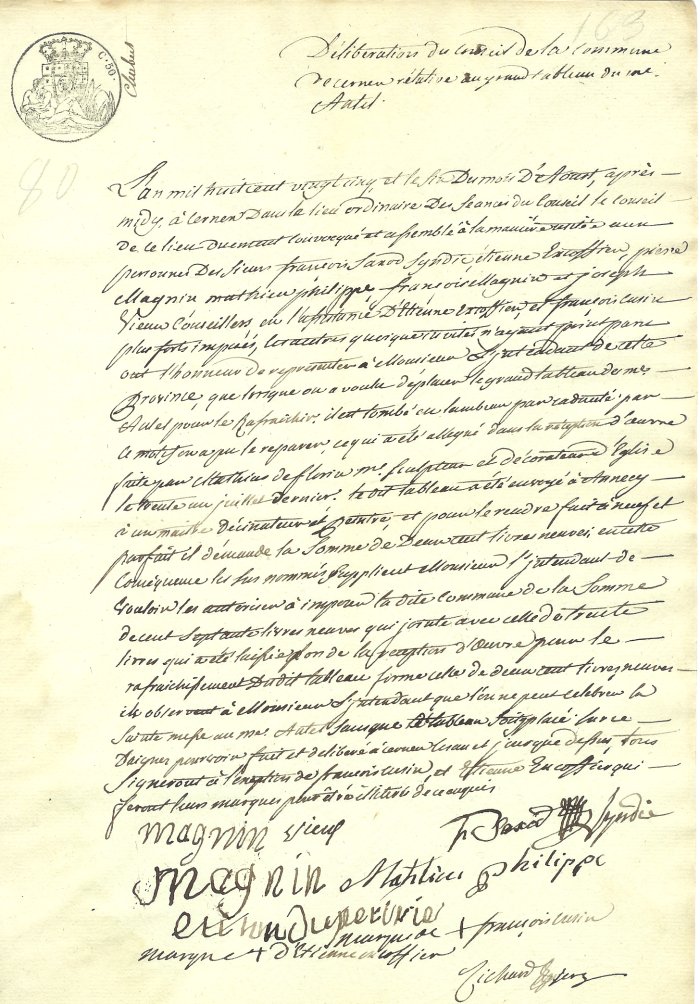 163
C. 50.
80
Déliberation du conseil de la commune
de cernex rélative au grand tableau du me
Autel
L'an mil huit cent vingt cinq, et le six Du mois D'Aoust, après
midy, à cernex Dans le lieu ordinaire Des Seances du Conseil le conseil
de ce lieu Duement convoqué et assemblé à la manière usitée aux
personnes Des Sieurs françois Saxod Syndic étienne Encoffier, pierre
Magnin mathieu philippe françois Magnin et joseph
Vieux Conseillers, en l'assistance D'Etiene Encoffier et françois cusin
plus forts imposés, les autres quoique invités n'ayant point paru
ont l'honneur de representer à Monsieur L'jntendant de cette
Province, que lorsque on a voulu déplacer le grand tableau du me
Autel pour le Rafraichir, il est tombé en lambeau par caducité par
ce motif on a pu le reparer, ce qui a été allegué dans la réception d'œuvre
faite par Mathias de florin me Sculpteur et décorateur d'Eglise
le trente un juillet dernier, le dit tableau a été envoyé à Annecy
à un maitre décinateur et peintre, et pour le rendre fait à neuf et
parfait il demande la Somme de Deux cent livres neuves, en cette
Conséquence les sus nommés Supplient Monsieur l'jntendant de
Vouloir les autoriser à imposer la dite Commune de la Somme
de cent Septante livres neuves qui jointe avec celle de trente
livres qui a été laissée lors de la réception d'Œuvre pour le
rafraichissement Dudit tableau forme celle de deux cent livres neuves
ils observent à Monsieur L'jntendant que l'on ne peut celebrer la
Sainte messe au me Autel sans que le tableau soit placé sur ce
Daignez pourvoir fait et deliberé à cernex l'an et jour que dessus tous
Signeront à l'éxeption de françois cusin, et Etienne Encoffier qui
feront leurs marques pour être illiterés de ce enquis
magnin vieux fr Saxod Syndic
magnin Mathieu philippe
marque de + françois cusin
marque + d'Etienne encoffier
Richard